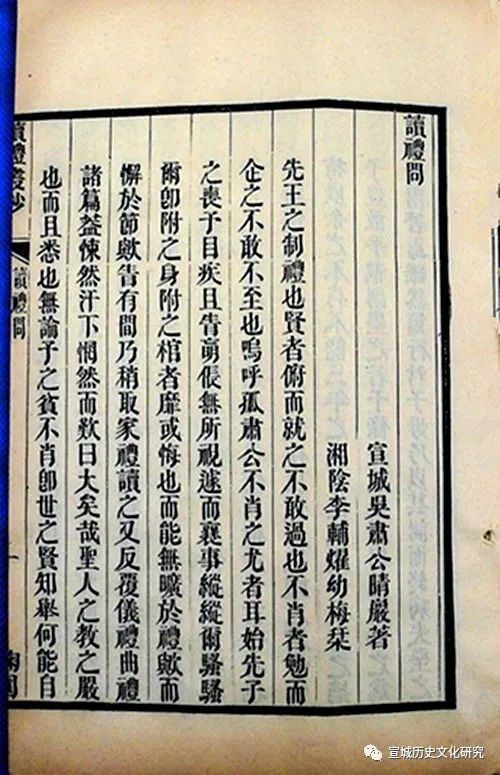 讀禮問
宣城吳肅公晴巖著
湘陰李輔燿幼梅栞
先王之制禮也賢者俯而就之不敢過也不肖者勉而
企之不敢不至也嗚呼孤肅公不肖之尤者耳始先子
之喪予目疾且眚萌倀無所視遽而襄事縱縱爾騷騷
爾卽附之身附之棺者靡或悔也而能無曠於禮歟而
懈於節歟眚有間乃稍取家禮讀之又反覆儀禮曲禮
諸篇葢悚然汗下惘然而歎曰大矣哉聖人之教之嚴
也而且悉也無論予之貧不肖卽世之賢知舉何能自
讀禮叢鈔
讀禮問
一
宣城历史文化研究